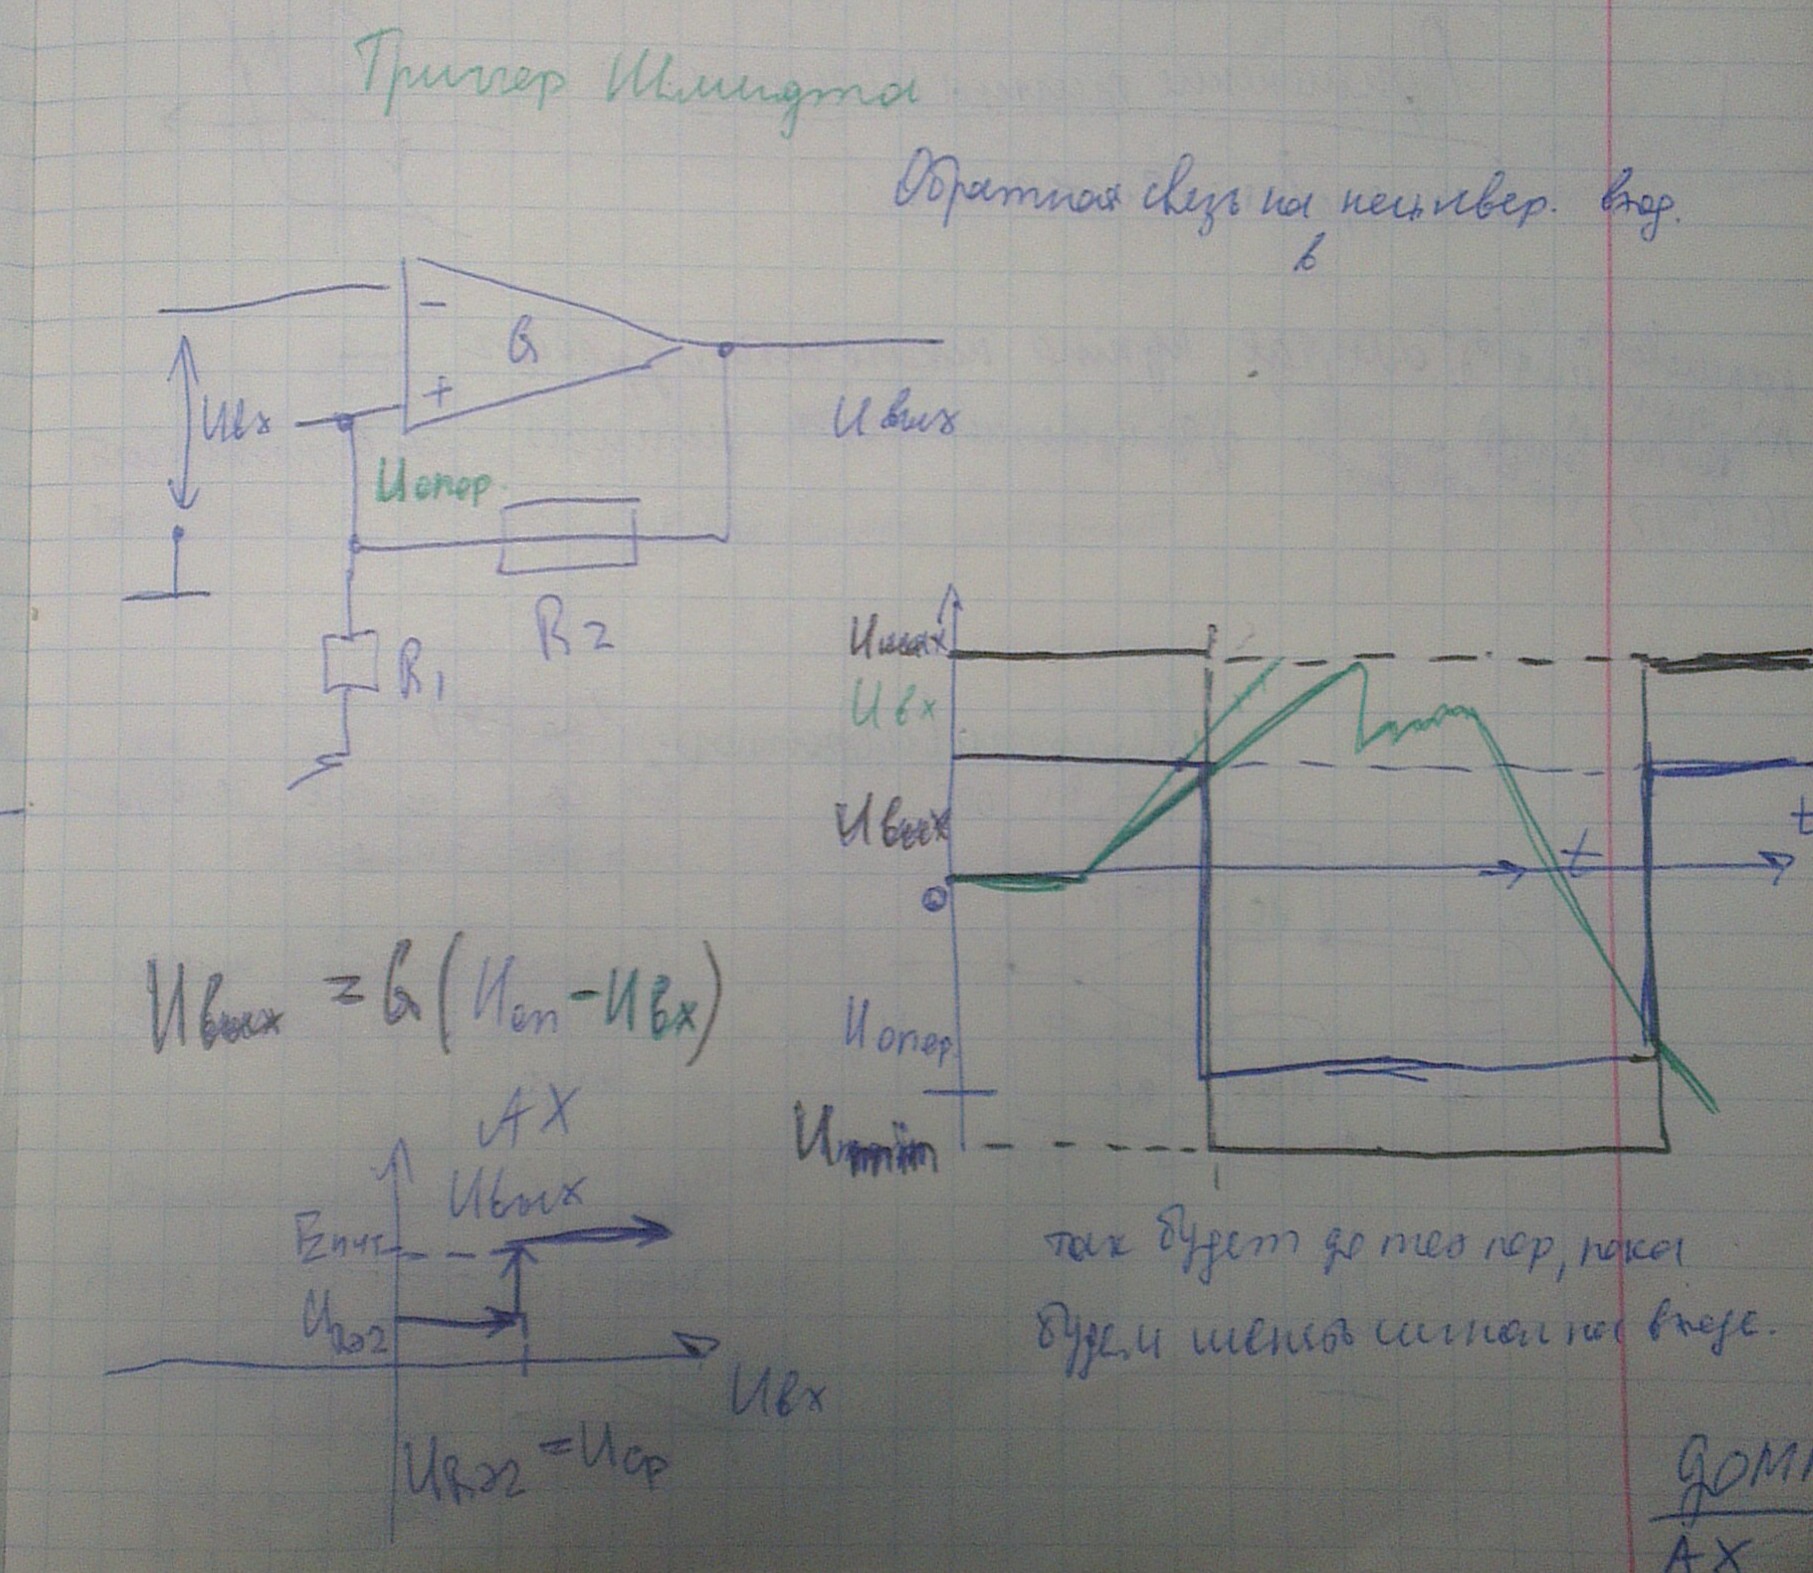 Триггер Шмидта
Обратная связь на неинвер. вход.
в
-
G
+
Uвх
Uвых
Uопор.
R2
R1
Umax
Uвх
Uвых
t
t
0
Uопор.
Umin
Uвых = G(Uоп - Uвх)
АХ
Uвых
Eпит
Uвх
так будет до тех пор, пока
будем менять сигнал на входе.
АХ